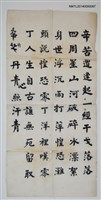 辛苦遭逢起一經干戈落落
四星山河破碎水漂絮
身世浮沉雨打萍惶恐灘
頭說惶恐零丁洋裡嘆零
丁人生自古誰無死留取
丹青照汗青